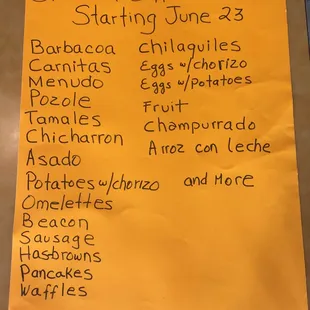 Starting June 23
Barbacoa
Carnitas
Menudo
Pozole
Tamales
Chicharron
Asado
Potatoes w/chorizo
Omelettes
Beacon
Sausage
Hasbrowns
Pancakes
Waffles
Chilaquiles
Eggs w/chorizo
Eggs w/Potatoes
Fruit
Champurrado
Arroz con leche
and More